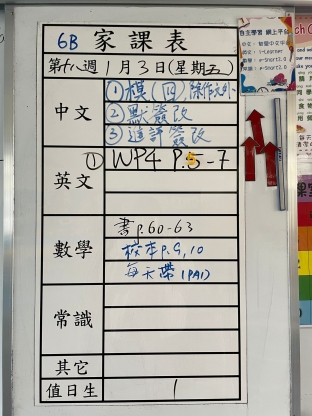 6B 家課表
第十八週 1月3日(星期五)
中文
①模(四),除作文外
②默簽改
③進評簽改
英文
① WP4 P.5-7
數學
書p.60-63
校本p.9,10
每天帶(PA1)
常識
其它
值日生
1
自主學習 網上平台